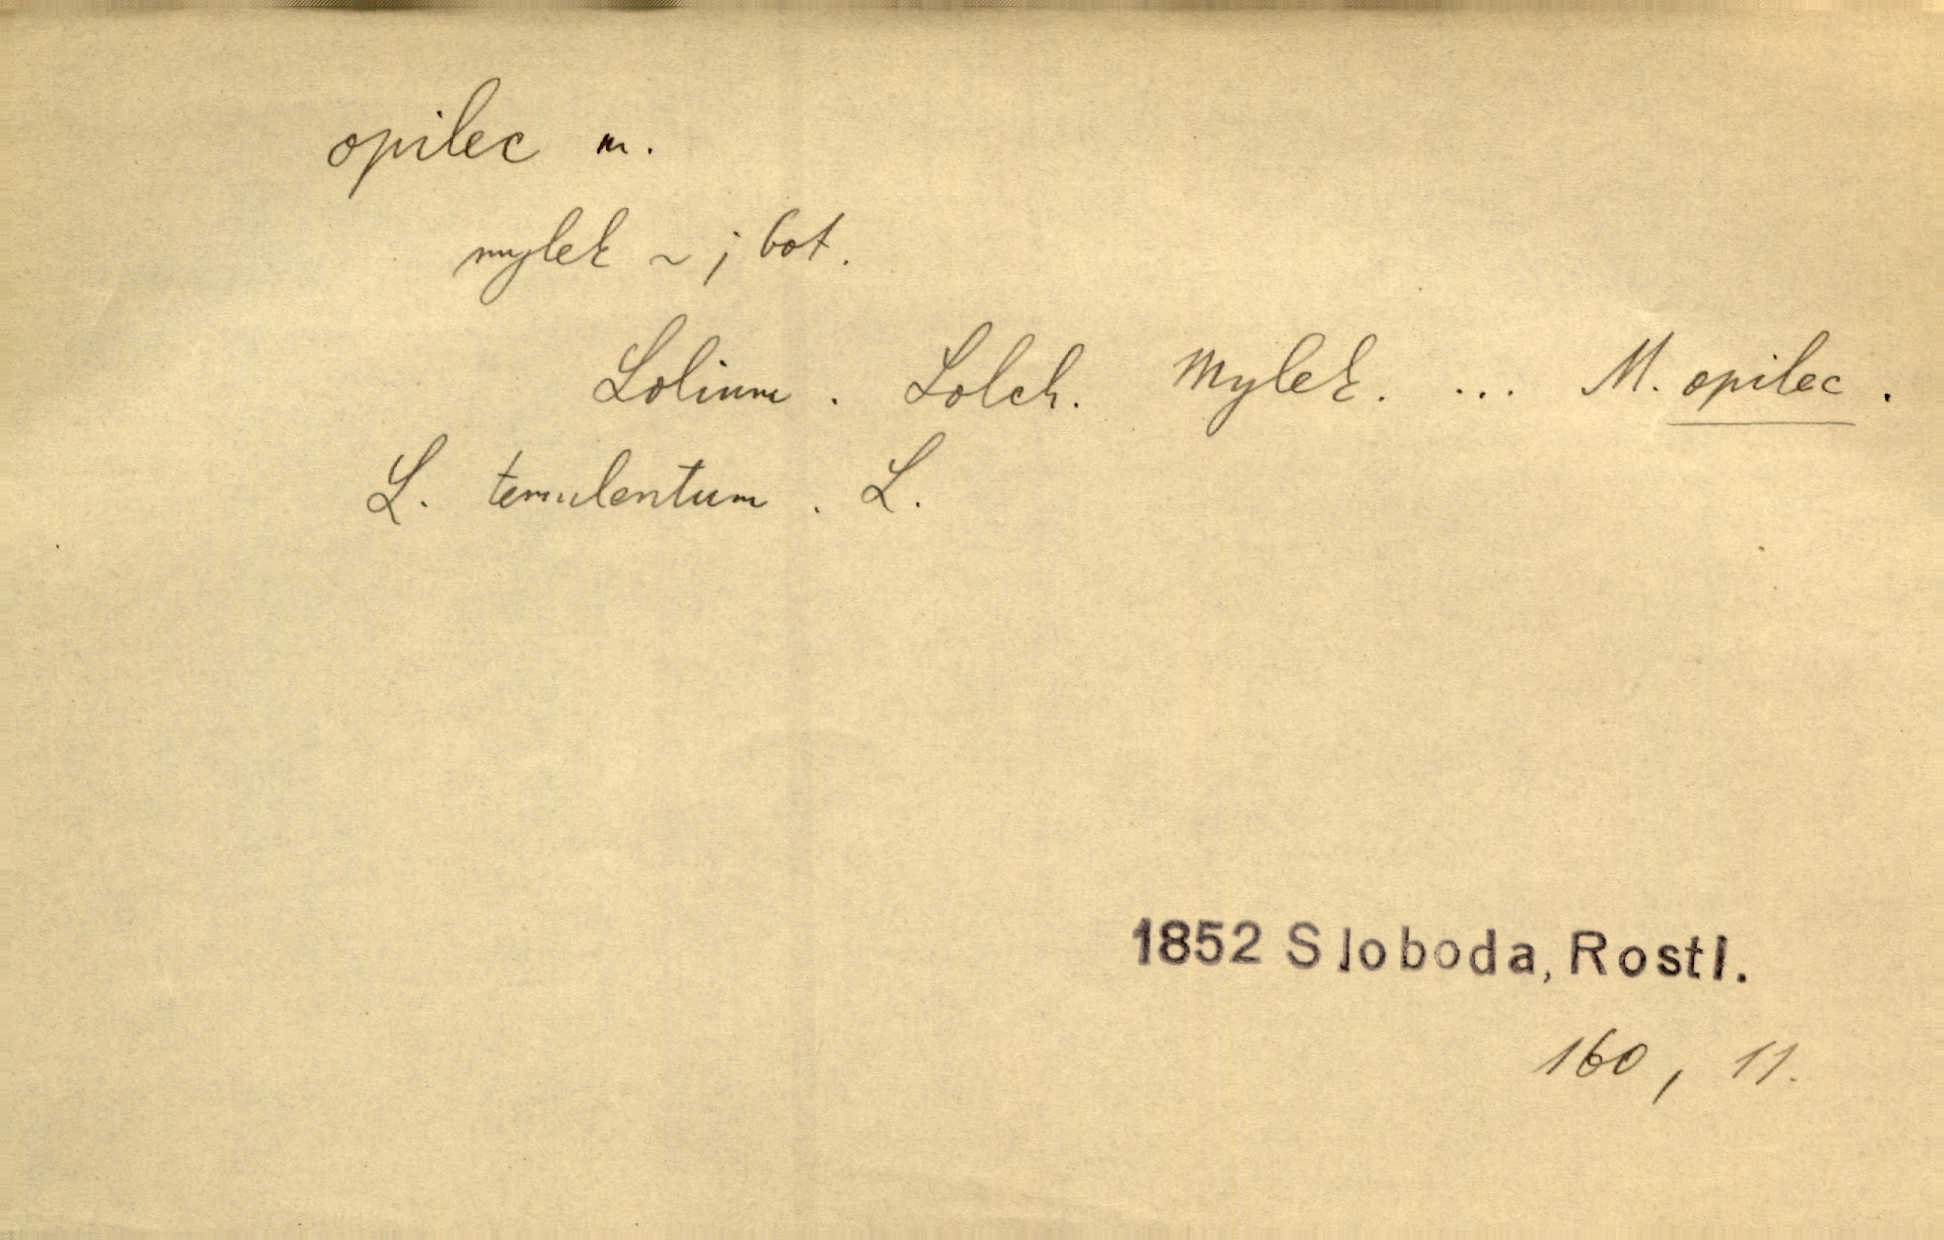 opilec m.
mylek ~ ; bot.
Lolium. Lolch. Mylek. ... M. opilec.
L. temulentum. L.
1852 Sloboda, Rostl.
160, 11.